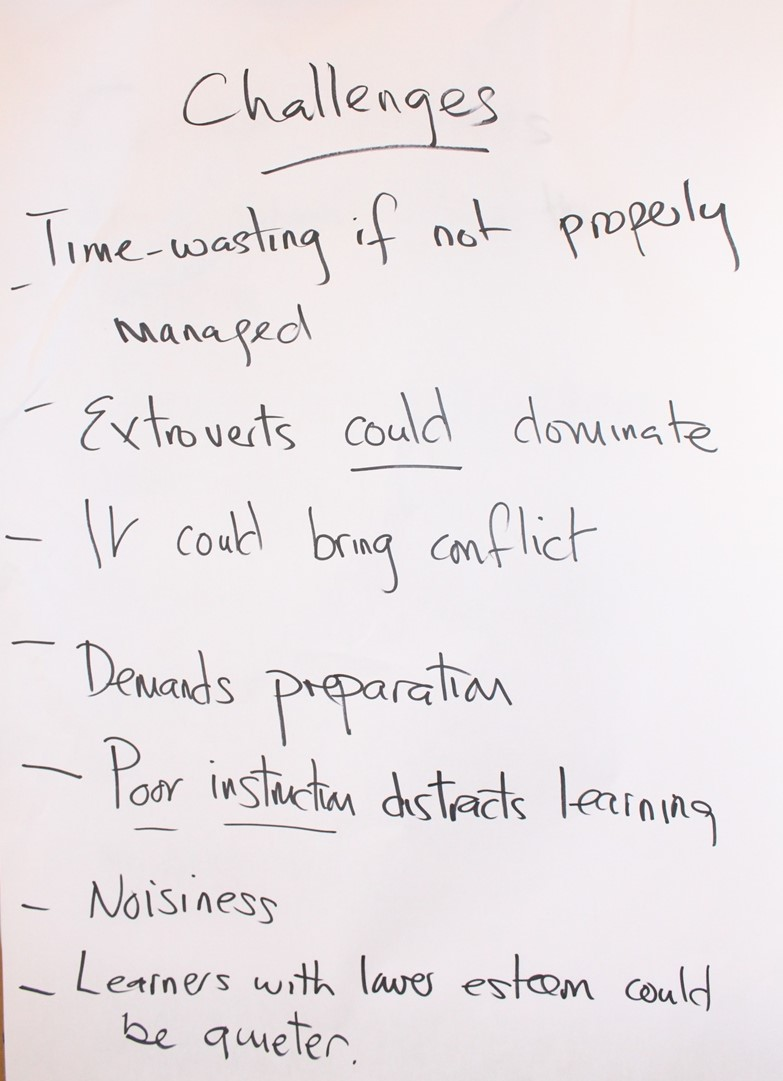 Challenges
- Time-wasting if not properly
managed
- Extroverts could dominate
- It could bring conflict
- Demands preparation
- Poor instruction distracts learning
- Noisiness
- Learners with lower esteem could
be quieter.